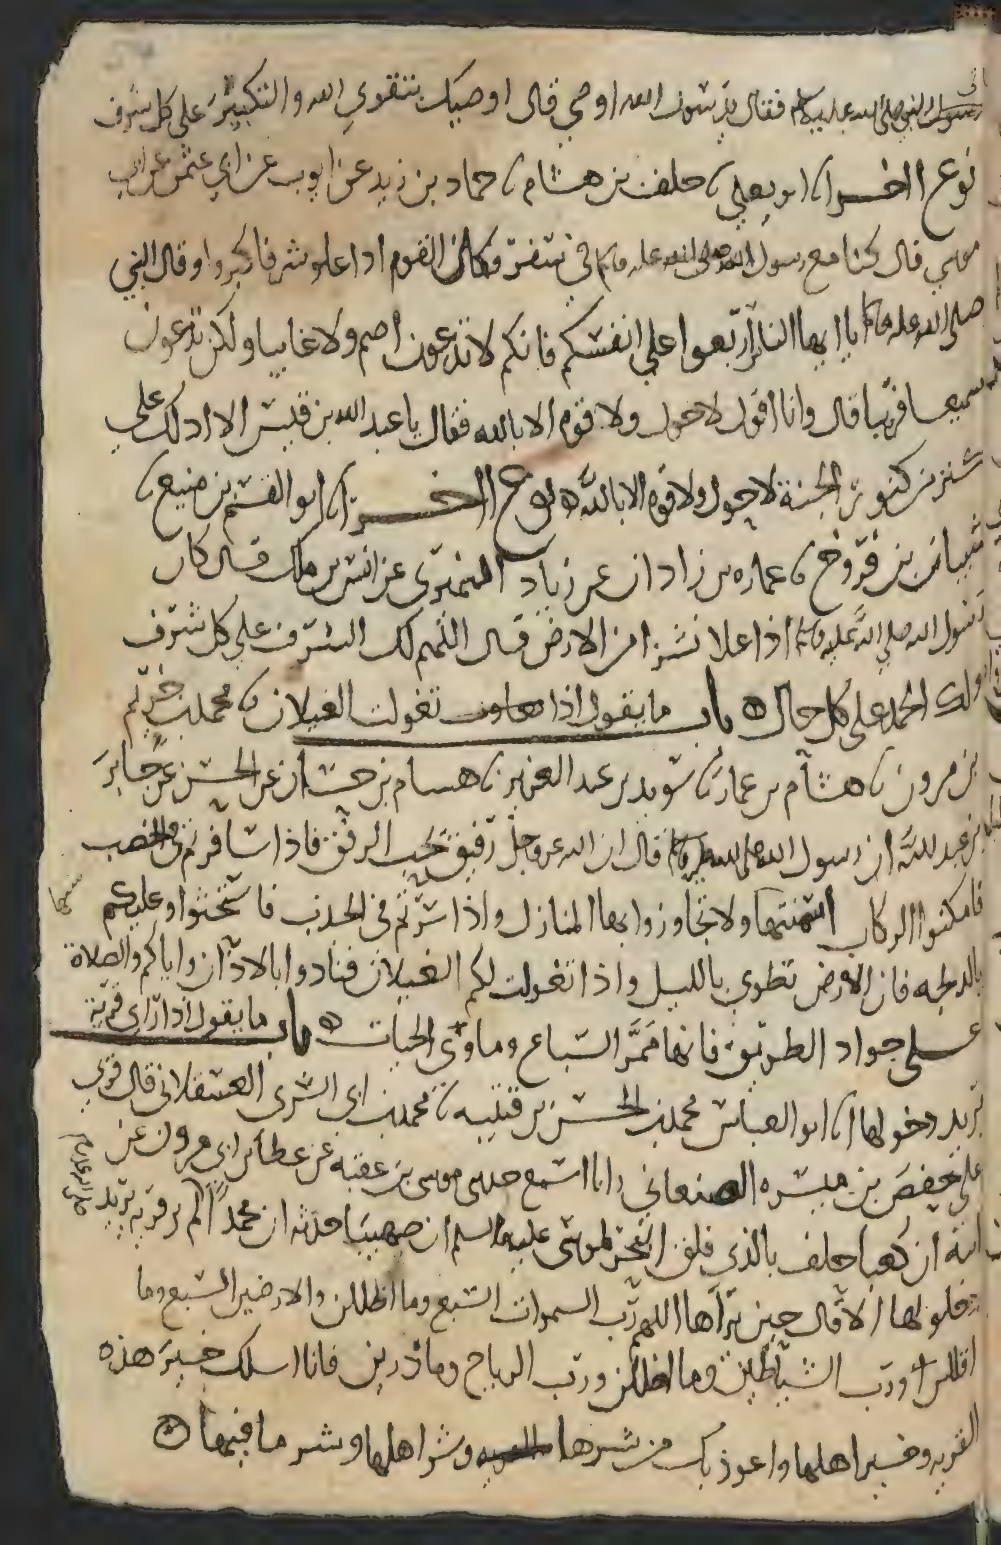 رسول النبي صلى الله عليه وسلم فقال يا رسول الله اوصي قال اوصيك بتقوى الله والتكبير على كل شرف
نوع اخر انا ابو يعلى نا خلف بن هشام نا حماد بن زيد عن ايوب عن ابي عثمن عن ابي
موسى قال كنا مع رسول الله صلى الله عليه وسلم في سفر فكان القوم اذا علو شرفا كبروا وقال النبي
صلى الله عليه وسلم يا ايها الناس اربعوا على انفسكم فانكم لا تدعون اصم ولا غايبا ولكن تدعون
سميعا قريبا قال وانا اقول لا حول ولا قوة الا بالله فقال يا عبد الله بن قيس الا ادلك على
كنز من كنوز الجنة لا حول ولا قوة الا بالله نوع اخر انا ابو القسم بن منيع نا
شيبان بن فروخ نا عماره بن زاذان عن زياد النميري عن انس بن ملك قال كان
رسول الله صلى الله عليه وسلم اذا علا نشزا من الارض قال اللهم لك الشرف على كل شرف
ولك الحمد على كل حال باب ما يقول اذا تغولت الغيلان نا محمد بن خريم
بن مرون نا هشام بن عمار نا سويد بن عبد العزيز نا هسام بن حسان عن الحسن عن جابر
بن عبد الله ان رسول الله صلى الله عليه وسلم قال ان الله عز وجل رفيق يحب الرفق فاذا سافرتم في الخصب
فامكنوا الركاب اسنتها ولا تجاوزوا بها المنازل واذا سرتم في الجدب فاستنجوا وعليكم
بالدلجه فان الارض تطوى بالليل واذا تغولت لكم الغيلان فنادوا بالاذان واياكم والصلاة
على جواد الطريق فانها ممر السباع وماوى الحيات باب ما يقول اذا راى قرية
يريد دخولها انا ابو العباس محمد بن الحسن بن قتيبه نا محمد بن ابي السري العسقلاني قال قري
على حفص بن ميسره الصنعاني وانا اسمع حدثني موسى بن عقبه عن عطا بن ابي مرون عن
ابيه ان كعبا حلف بالذي فلق البحر لموسى عليه السلم ان صهيبا حدثه ان محمدا لم ير قريه يريد
دخولها الا قال حين يراها اللهم رب السموات السبع وما اظللن والارضين السبع وما
اقللن ورب الشياطين وما اضللن ورب الرياح وما ذرين فانا اسلك خير هذه
القريه وخير اهلها واعوذ بك من شرها وشر اهلها وشر ما فيها